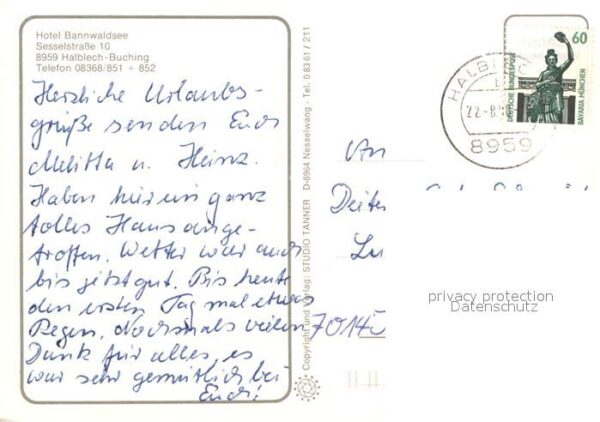 Hotel Bannwaldsee
Sesselstraße 10
8959 Halblech-Buching
Telefon 08368/851 + 852
Herzliche Urlaubs-
grüße senden Euch
Melitta u. Heinz.
Haben hier ein ganz
tolles Haus ange-
troffen. Wetter war auch
bis jetzt gut. Bis heute
den ersten Tag mal etwas
Regen. Nochmals vielen
Dank für alles, es
war sehr gemütlich bei
Euch!
Copyright und Verlag: STUDIO TANNER D-8964 Nesselwang · Tel. 0 83 61 / 211
HALBLEC
22.-8.
8959
60
DEUTSCHE BUNDESPOST
BAVARIA MÜNCHEN
An
Lu
7014
privacy protection
Datenschutz